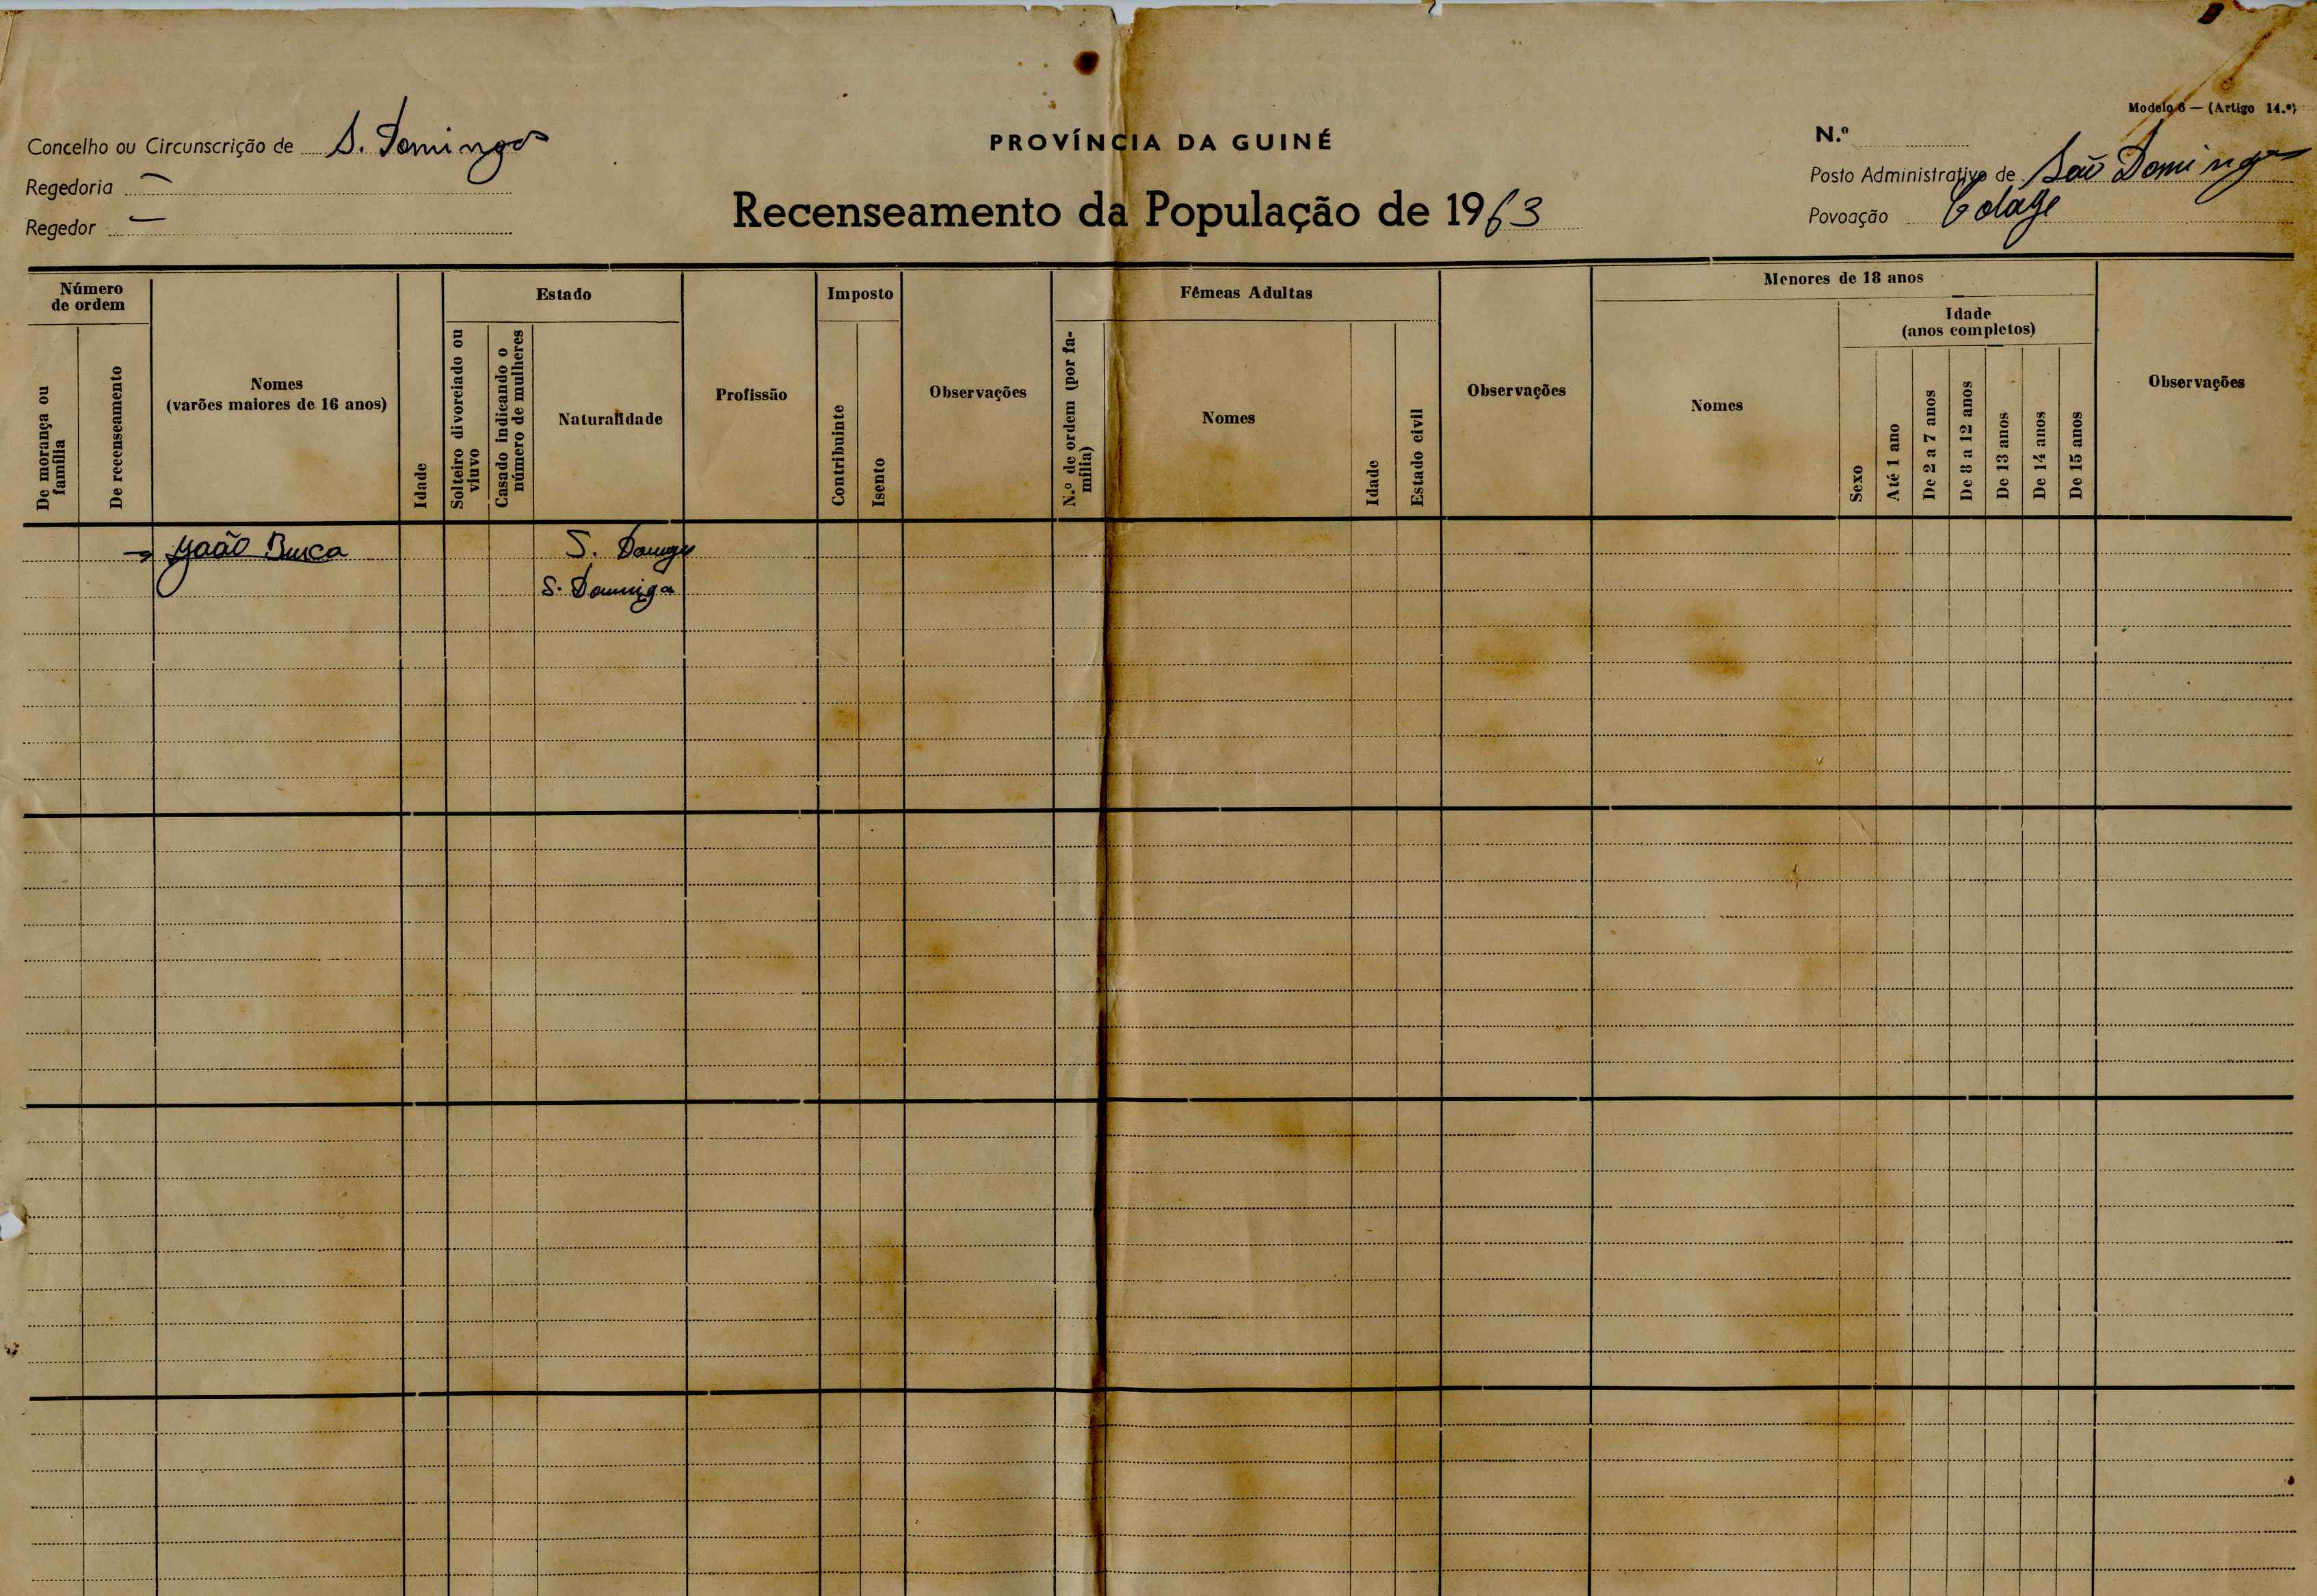 Modelo 6 — (Artigo 14.º)
Concelho ou Circunscrição de S. Domingos
PROVÍNCIA DA GUINÉ
N.º
Regedoria —
Posto Administrativo de São Domingos
Regedor —
Recenseamento da População de 1963
Povoação
Número de ordem
De morança ou família
De recenseamento
Nomes
(varões maiores de 16 anos)
Idade
Estado
Solteiro divorciado ou viuvo
Casado indicando o número de mulheres
Naturalidade
Profissão
Imposto
Contribuinte
Isento
Observações
Fêmeas Adultas
N.º de ordem (por família)
Nomes
Idade
Estado civil
Observações
Menores de 18 anos
Nomes
Idade
(anos completos)
Sexo
Até 1 ano
De 2 a 7 anos
De 8 a 12 anos
De 13 anos
De 14 anos
De 15 anos
Observações
S.
S.